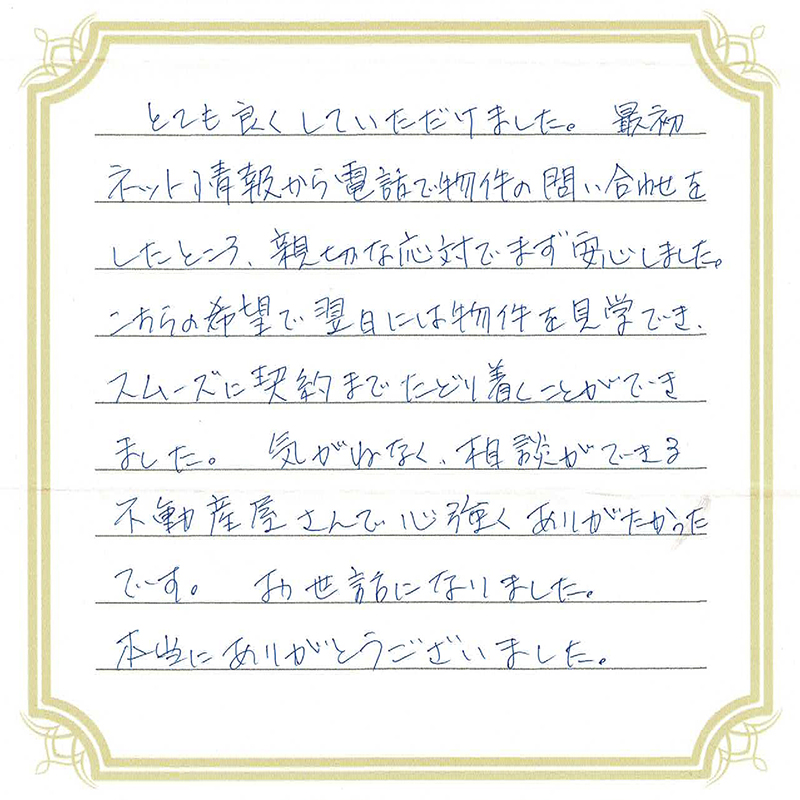 とても良くしていただけました。 最初
ネット情報から電話で物件の問い合わせを
したところ、親切な応対でまず安心しました。
こちらの希望で翌日には物件を見学でき、
スムーズに契約までたどり着くことができ
ました。 気がねなく、相談ができる
不動産屋さんで心強くありがたかった
です。 お世話になりました。
本当にありがとうございました。